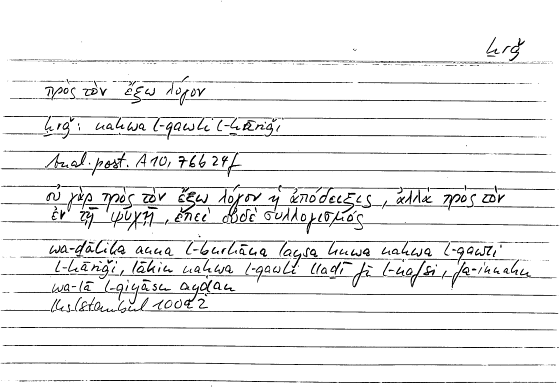 ḫrǧ
πρὸς τὸν ἔξω λόγον
ḫrǧ: naḥwa l-qawli l-ḫāriǧi
Anal. post. A10, 76b24f
οὐ γὰρ πρὸς τὸν ἔξω λόγον ἡ ἀπόδειξις, ἀλλὰ πρὸς τὸν
ἐν τῇ ψυχῇ, ἐπεὶ οὐδὲ συλλογισμός
wa-ḏālika anna l-burhāna laysa huwa naḥwa l-qawli
l-ḫāriǧi, lākin naḥwa l-qawli llaḏī fī l-nafsi, fa-innahu
wa-lā l-qiyāsu ayḍan
Hs Istanbul